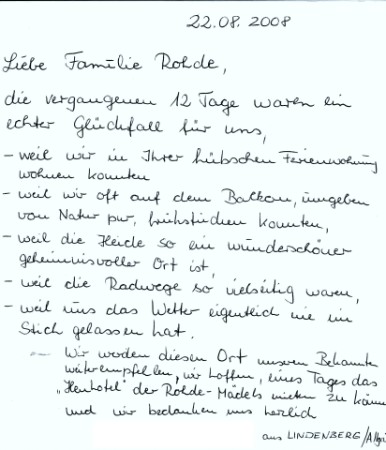 22.08.2008
Liebe Familie Rohde,
die vergangenen 12 Tage waren ein
echter Glücksfall für uns,
- weil wir in Ihrer hübschen Ferienwohnung
wohnen konnten
- weil wir oft auf dem Balkon, umgeben
von Natur pur, frühstücken konnten,
- weil die Heide so ein wunderschöner
geheimnisvoller Ort ist,
- weil die Radwege so vielseitig waren,
- weil uns das Wetter eigentlich nie im
Stich gelassen hat.
Wir werden diesen Ort unseren Bekannten
weiterempfehlen, wir hoffen, eines Tages das
„Heuhotel" der Rohde-Mädels mieten zu können
und wir bedanken uns herzlich
aus LINDENBERG/